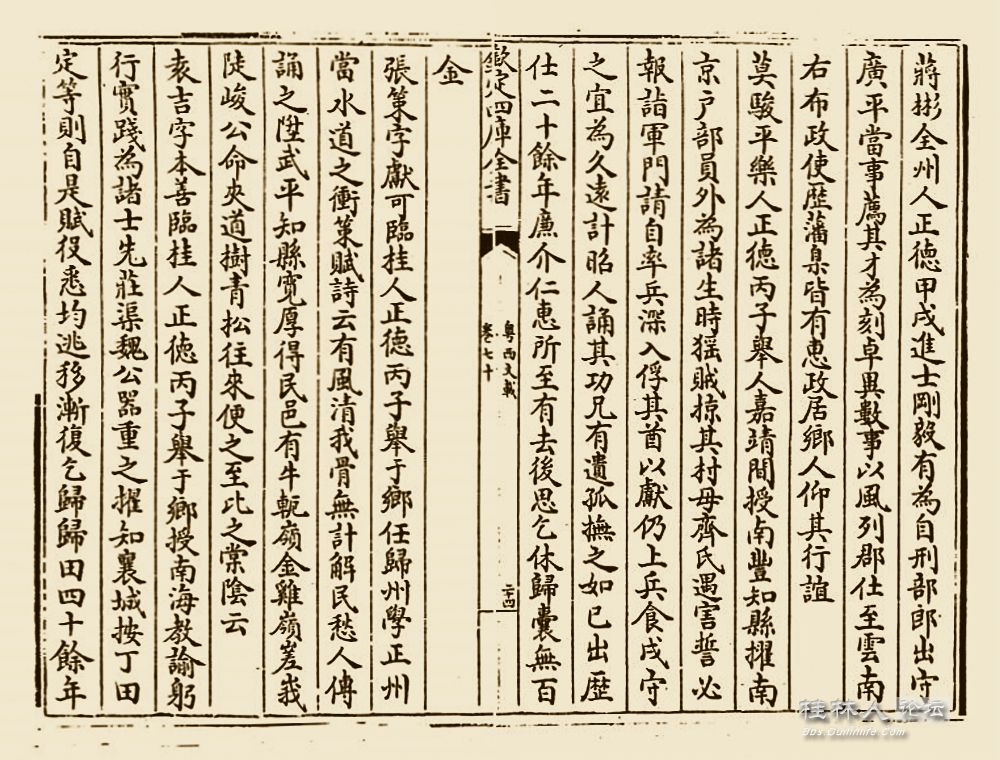 蔣彬全州人正德甲戌進士剛毅有為自刑部郎出守
廣平當事薦其才為刻卓異數事以風列郡仕至雲南
右布政使歷藩臬皆有惠政居鄉人仰其行誼
莫駿平樂人正德丙子舉人嘉靖間授南豐知縣擢南
京户部員外為諸生時猺賊掠其村母齊氏遇害誓必
報詣軍門請自率兵深入俘其酋以獻仍上兵食戍守
之宜為久遠計昭人誦其功兄有遺孤撫之如己出歷
仕二十餘年廉介仁惠所至有去後思乞休歸囊無百
欽定四庫全書
粤西文載
卷七十
二十四
金
張策字獻可臨桂人正德丙子舉于鄉任歸州學正州
當水道之衝策賦詩云有風清我骨無計解民愁人傳
誦之陞武平知縣寬厚得民邑有牛軛嶺金雞嶺嵳峩
陡峻公命夾道樹青松往來便之至比之棠陰云
袁吉字本善臨桂人正德丙子舉于鄉授南海教諭躬
行實踐為諸士先莊渠魏公器重之擢知襄城按丁田
定等則自是賦役悉均逃移漸復乞歸歸田四十餘年
桂林人论坛
bbs.Guilinlife.com